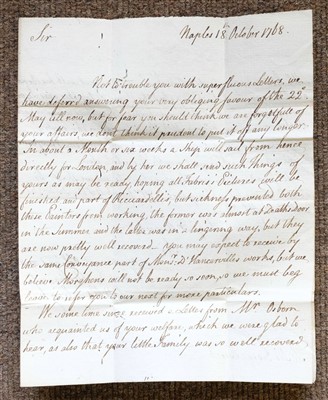 Sir
Naples 18 October 1768.
Not to trouble you with superfluous Letters, we
have deferd answering your very obliging favour of the 22d
May till now, but for fear you should think we are forgetfull of
your affairs, we dont think it prudent to put it off any longer
In about a Month or six weeks a Ship will sail from hence
directly for London, and by her we shall send such things of
yours as may be ready, hoping all Fabris's Pictures will be
finished and part of Ricciardellis, but sickness prevented both
these Painters from working, the former was almost at Deaths door
in the Summer and the latter was in a lingering way, but they
are now pretty well recoverd. You may expect to receive by
the same Conveyance part of Monsr. D'Hancarvilles works, but we
believe will not be ready so soon, so we must beg
leave to refer you to our next for more particulars.
We some time since received a Letter from Mr. Osborn
who acquainted us of your welfare, which we were glad to
hear, as also that your little Family was so well recovered